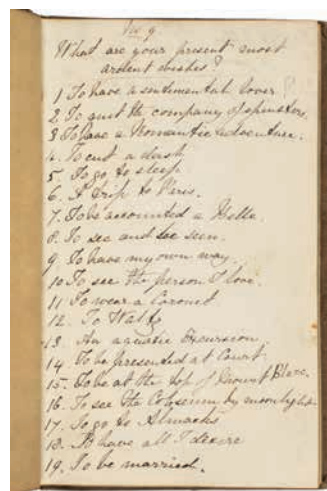 No 9
What are your present most
ardent wishes?
1 To have a sentimental lover?
2 To quit the company of spinsters.
3 To have a Romantic adventure.
4. To cut a dash
5. To go to sleep
6. A trip to Paris.
7. To be accounted a Belle.
8. To see and be seen.
9 To have my own way.
10 To see the person I love.
11 To wear a Coronet
12. To Waltz
13. An aquatic Excursion.
14 To be presented at Court.
15. To be at the top of Mount Blanc.
16. To see the Coloseum by moonlight
17. To go to Almacks
18. To have all I desire
19. To be married.